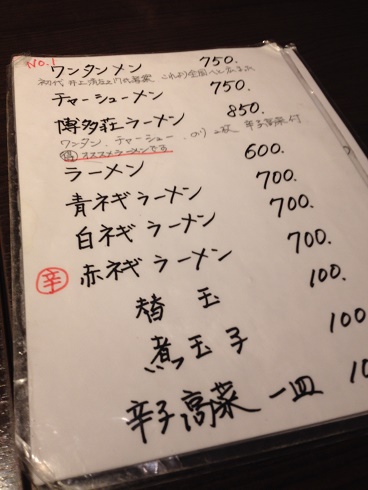 No.1
ワンタンメン 750.
初代 井上清左ェ門氏考案 これより全国へと広まる
チャーシューメン 750.
博多荘ラーメン 850.
ワンタン、チャーシュー、のり2枚 辛子高菜付
得 オススメラーメンです
ラーメン 600.
青ネギラーメン 700.
白ネギラーメン 700.
辛 赤ネギラーメン 700.
替玉 100.
煮玉子 100
辛子高菜 一皿 10